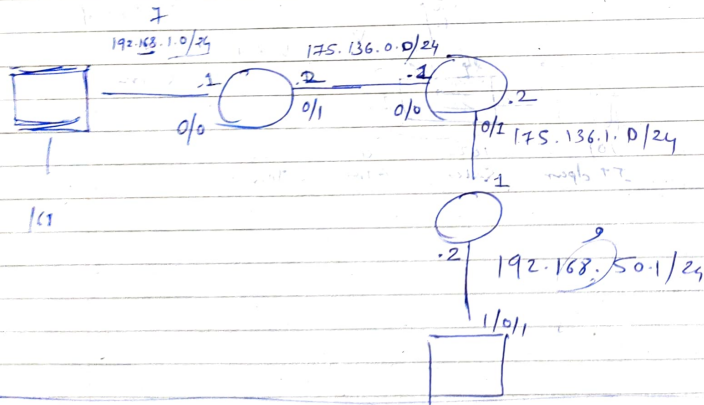 7
192.168.1.0/24
175.136.0.0/24
.1
.2
.1
.2
0/0
0/1
0/0
0/1
175.136.1.0/24
.1
.2
192.168.50.1/24
1/0/1